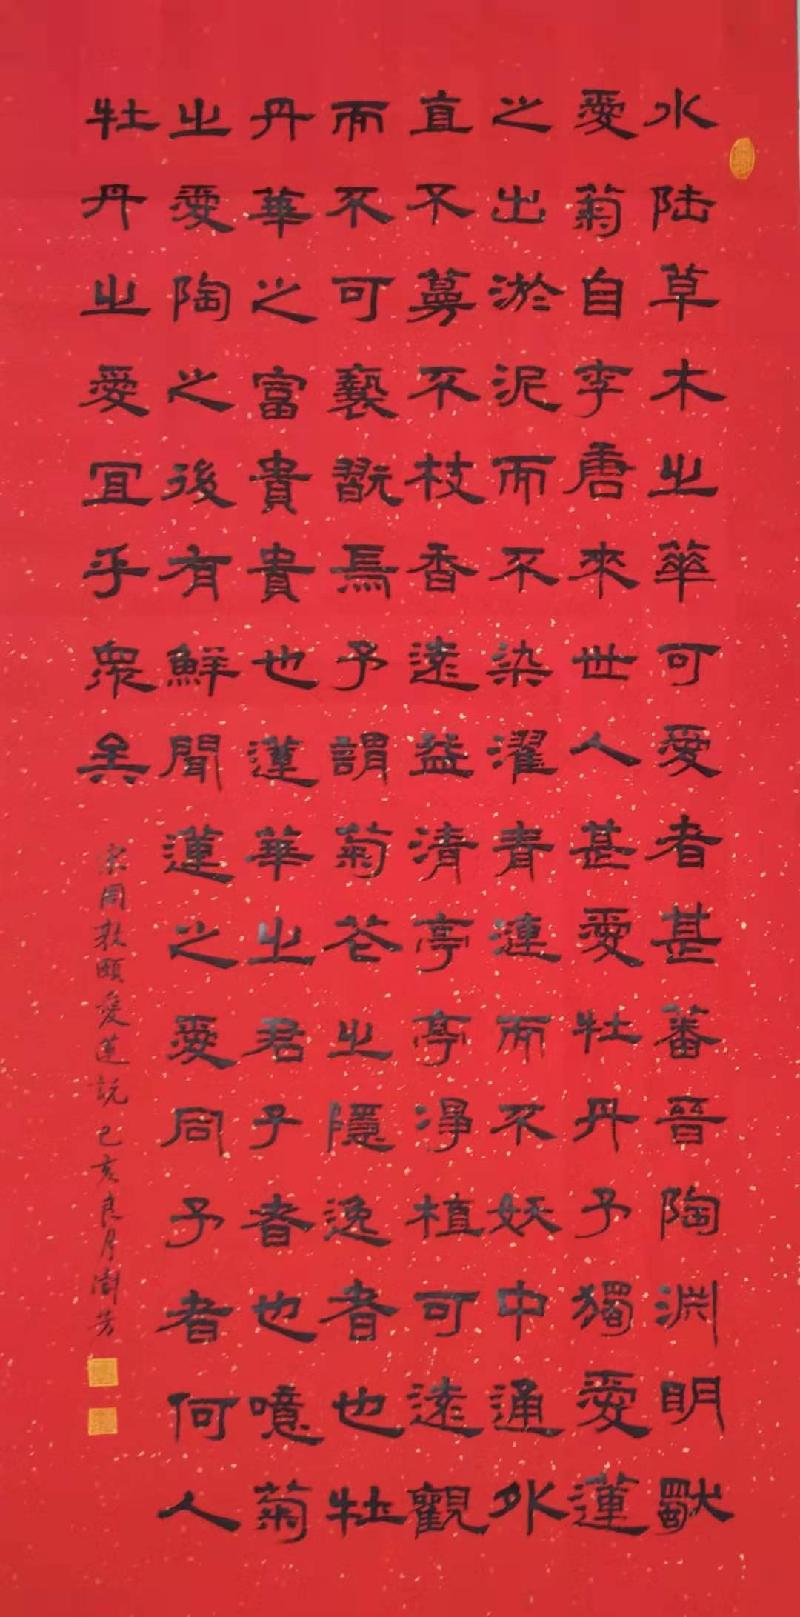 水陆草木之華可愛者甚蕃晉陶淵明獨
愛菊自李唐來世人甚愛牡丹予獨愛蓮
之出淤泥而不染濯青漣而不妖中通外
直不蔓不枝香遠益清亭亭淨植可遠觀
而不可褻翫焉予謂菊花之隱逸者也牡
丹華之富貴貴也蓮華之君子者也噫菊
之愛陶之後有鮮聞蓮之愛同予者何人
牡丹之愛宜乎眾矣
宋周敦頤愛蓮說己亥良月澍芳